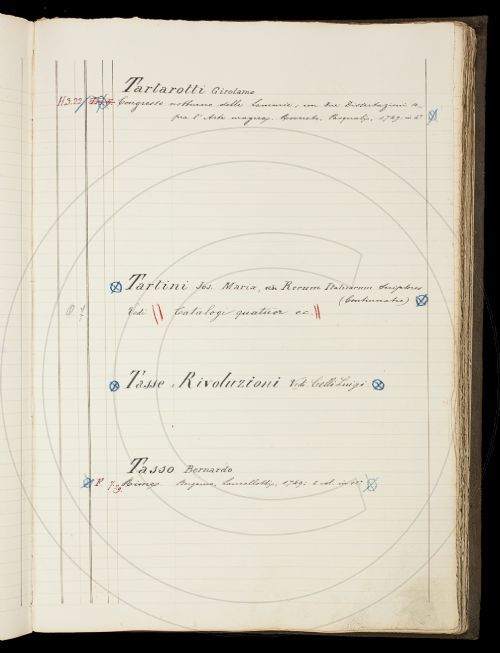 Tartarotti Girolamo
H.3.22 Congresso notturno delle Lammie, con due Dissertazioni so-
pra l'Arte magica. Rovereto, Pasquali, 1749. in 4º
Tartini Jos. Maria, in Rerum Italicarum Scriptores
(Continuatio)
Vedi Catalogi quatuor ec.
Tasse e Rivoluzioni Vedi Celli Luigi
Tasso Bernardo
P. Rime Lancellotti, 1749: 2 vol. in 12º